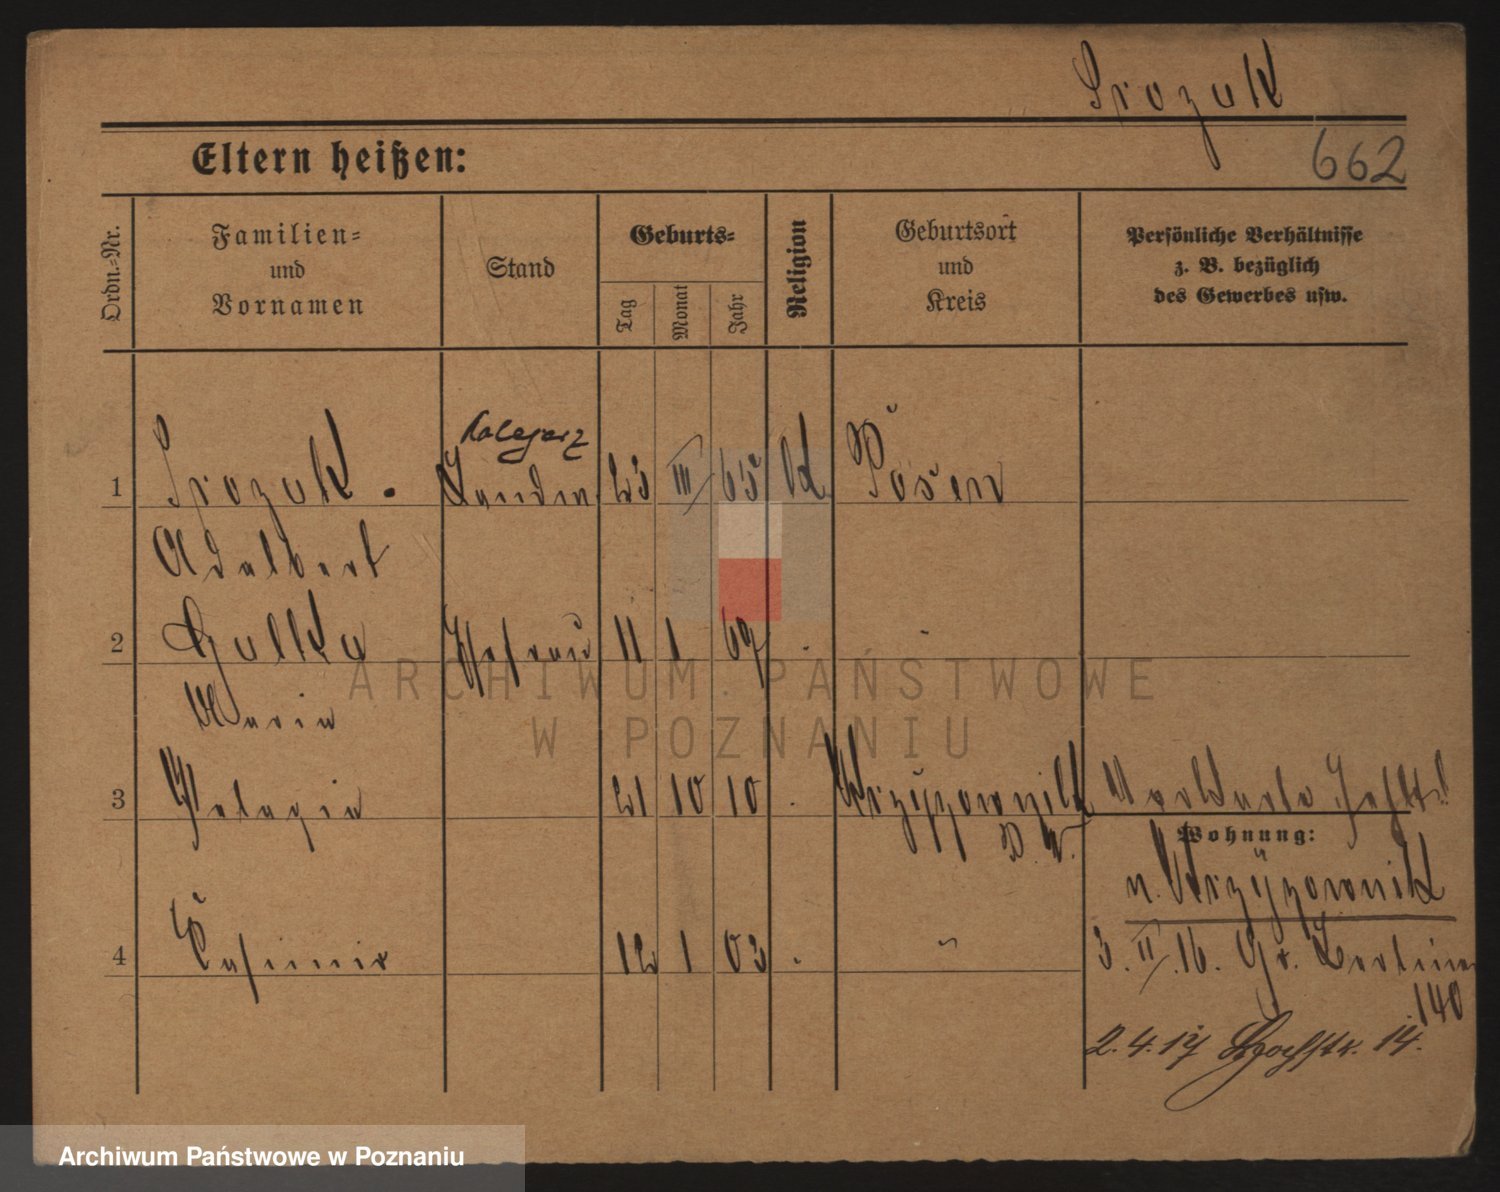 Srozuk
Eltern heißen:
662
Ordn.-Nr.
Familien-
und
Vornamen
Stand
Geburts-
Tag
Monat
Jahr
Religion
Geburtsort
und
Kreis
Persönliche Verhältnisse
z. B. bezüglich
des Gewerbes usw.
1 Srozuk. 23 III 65 K Posen
Adalbert
2 Gulka Ehefrau 11 1 69 . "
Maria
3 Pelagia 21 10 10 . Krzyzownik
P. W.
Wohnung:
n. Krzyzownik
4 Casimir 12 1 03 . "
3. II. 16. Gr. Berliner
140
2.4.17 Hochstr. 14.
ARCHIWUM PAŃSTWOWE
W POZNANIU
Archiwum Państwowe w Poznaniu